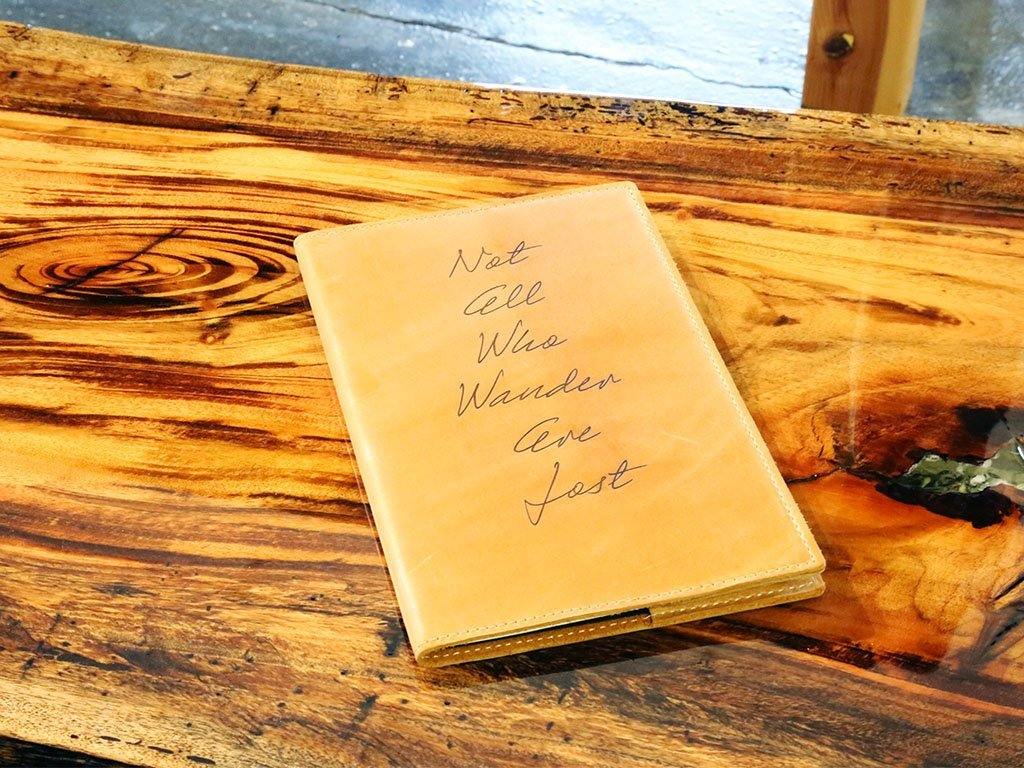 Not
All
Who
Wander
Are
Lost